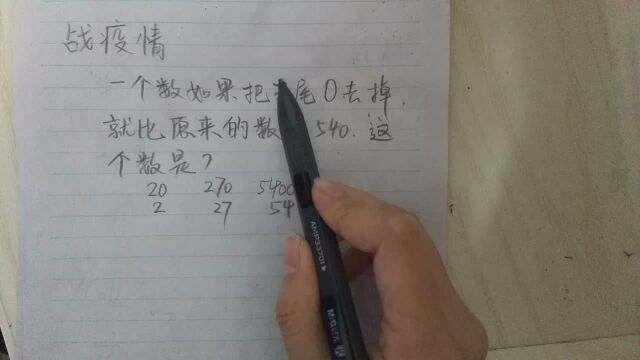 战疫情
一个数如果把 尾0去掉,
就比原来的数 540.这
个数是?
20 270 5400
2 27 54
M&G